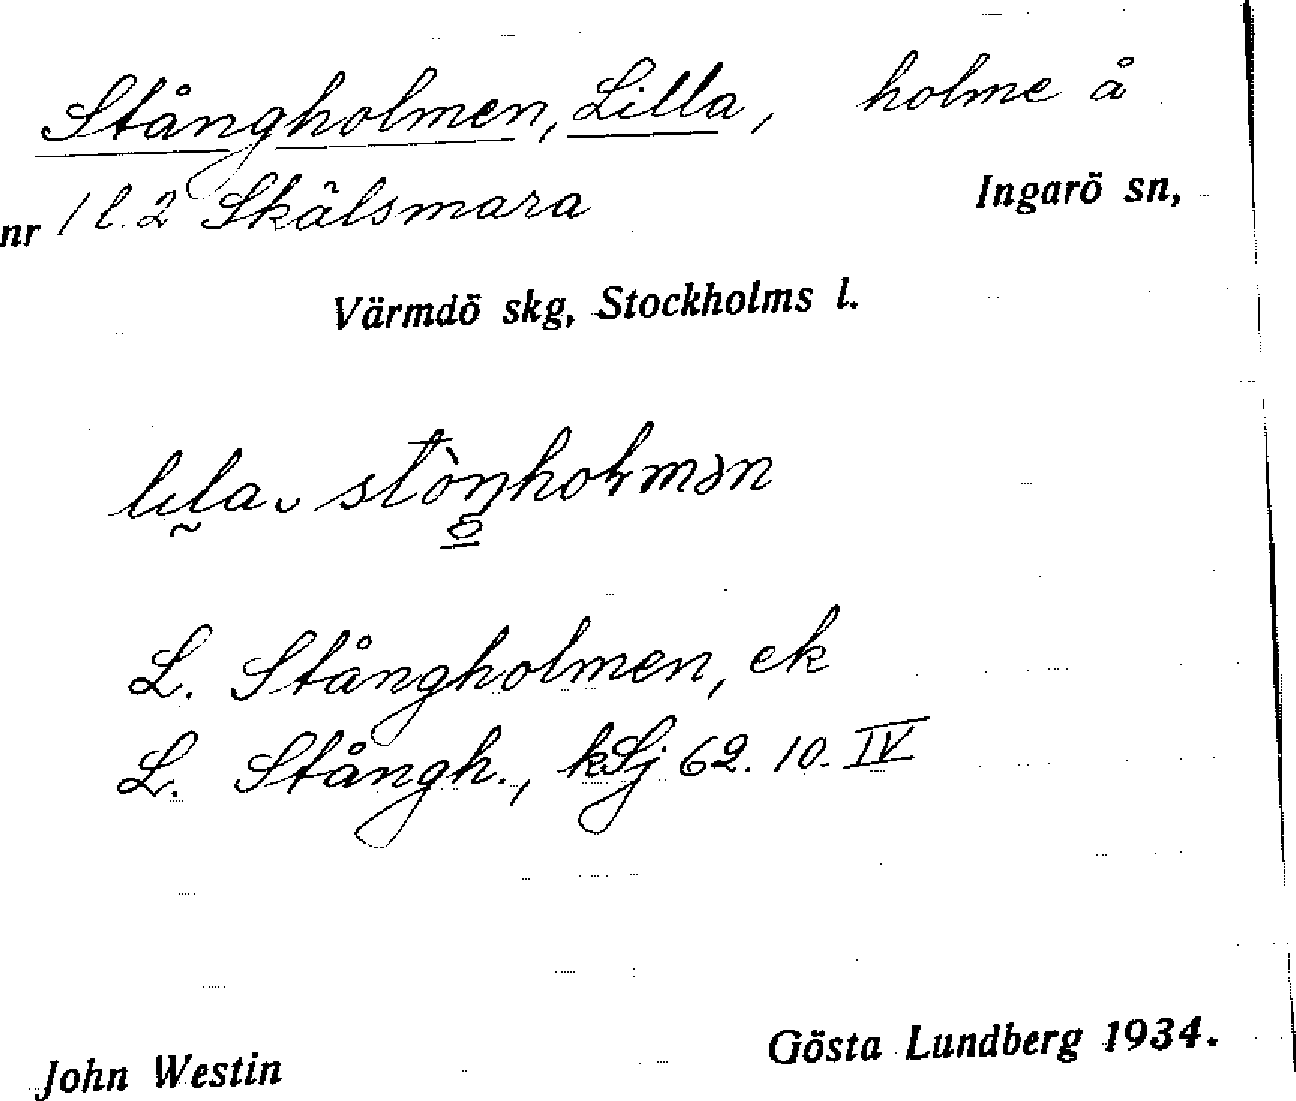 Stångholmen, Lilla, holme å
nr 1 l. 2 Skälsmara Ingarö sn,
Värmdö skg, Stockholms l.
L. Stångholmen, ek
L. Stångh., kSj 62. 10. IV
John Westin Gösta Lundberg 1934.